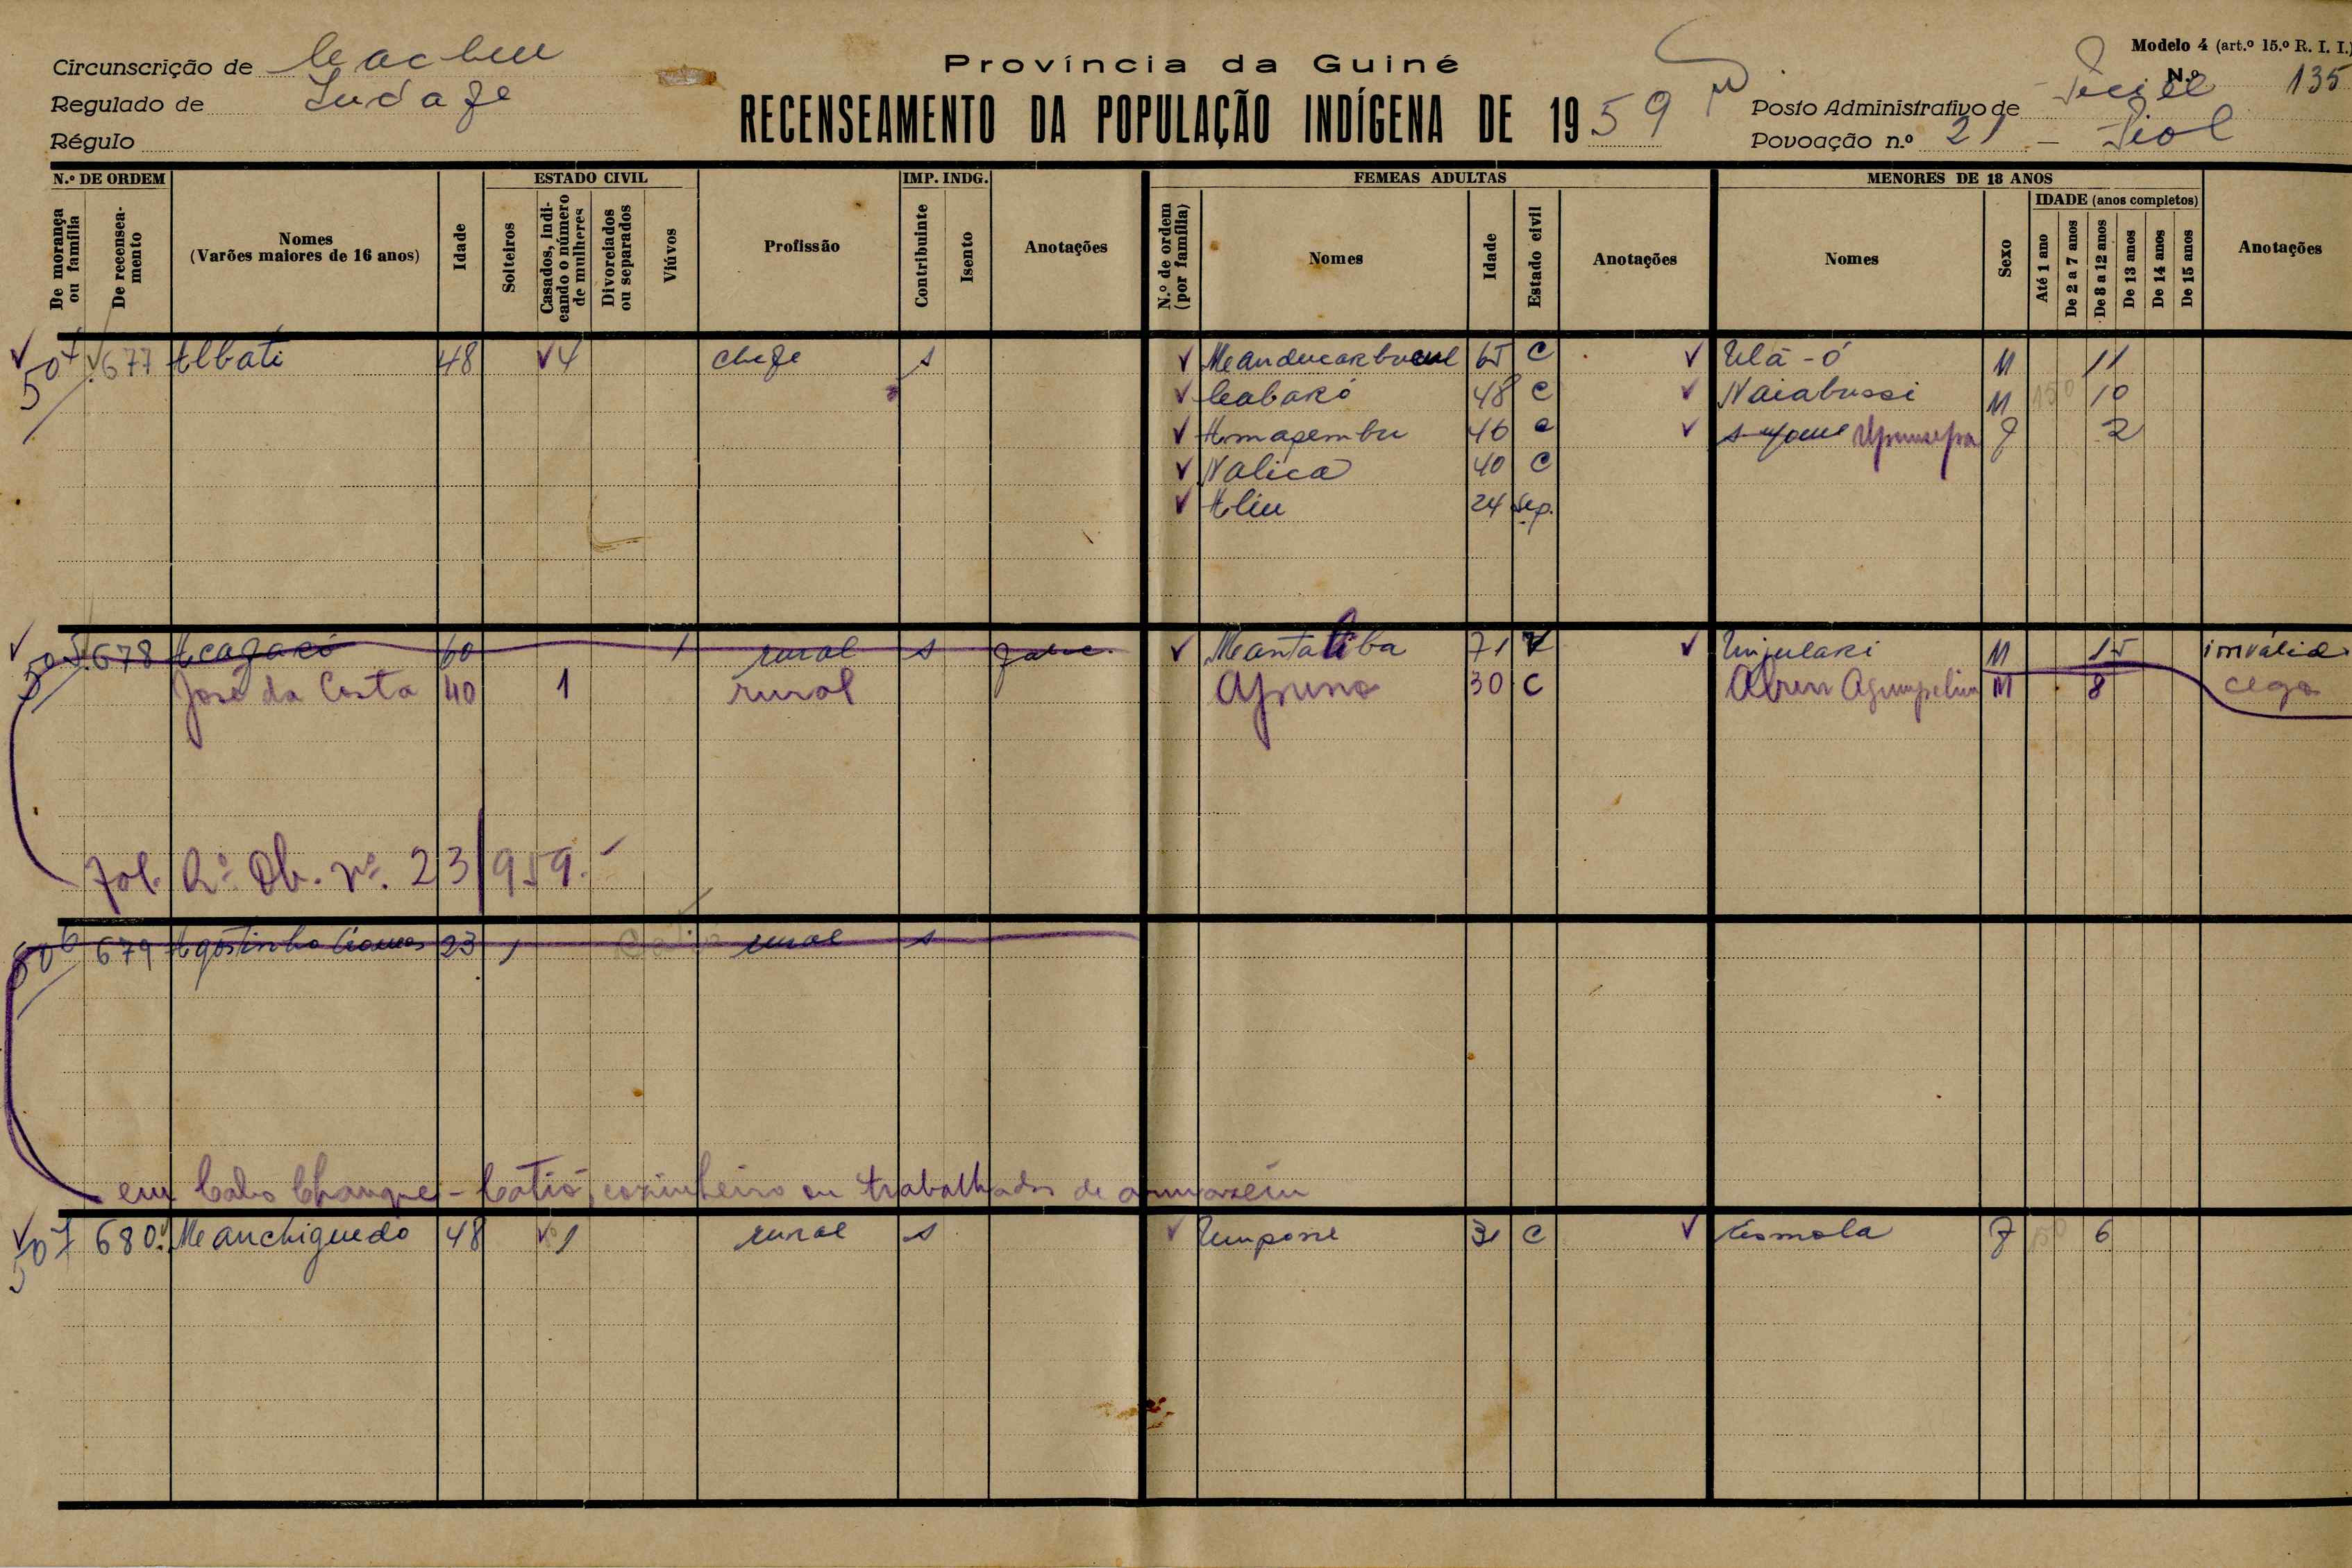 Província da Guiné
Modelo 4 (art.º 15.º R. I. I.)
N.º 135
Circunscrição de Cacheu
Regulado de
Régulo
RECENSEAMENTO DA POPULAÇÃO INDÍGENA DE 1959
Posto Administrativo de
Povoação n.º 21 - Jiol
N.º DE ORDEM
De morança ou família
De recenseamento
Nomes
(Varões maiores de 16 anos)
Idade
ESTADO CIVIL
Solteiros
Casados, indicando o número de mulheres
Divorciados ou separados
Viúvos
Profissão
IMP. INDG.
Contribuinte
Isento
Anotações
FEMEAS ADULTAS
N.º de ordem (por família)
Nomes
Idade
Estado civil
Anotações
MENORES DE 18 ANOS
Nomes
Sexo
IDADE (anos completos)
Até 1 ano
De 2 a 7 anos
De 8 a 12 anos
De 13 anos
De 14 anos
De 15 anos
Anotações
504 677 Albati 48 4 chefe s 65 C Ulã-ó M 11
Cabakó 48 C Naiabussi M 10
46 C F 2
Nalica 40 C
Aliu 24 sep.
505 678 Acagakó 60 1 rural s falec. Mantaliba 71 V Unjulaki M 15 inválido
José da Costa 40 1 rural 30 C M 8 cego
fol. R.º Ob. nº. 23/959.-
506 679 Agostinho Gomes 23 rural s
em Cabo Changue - Catió, cozinheiro ou trabalhador de armazém
507 680 Manchiguedo 48 1 rural s Umpone 31 C Esmola F 6